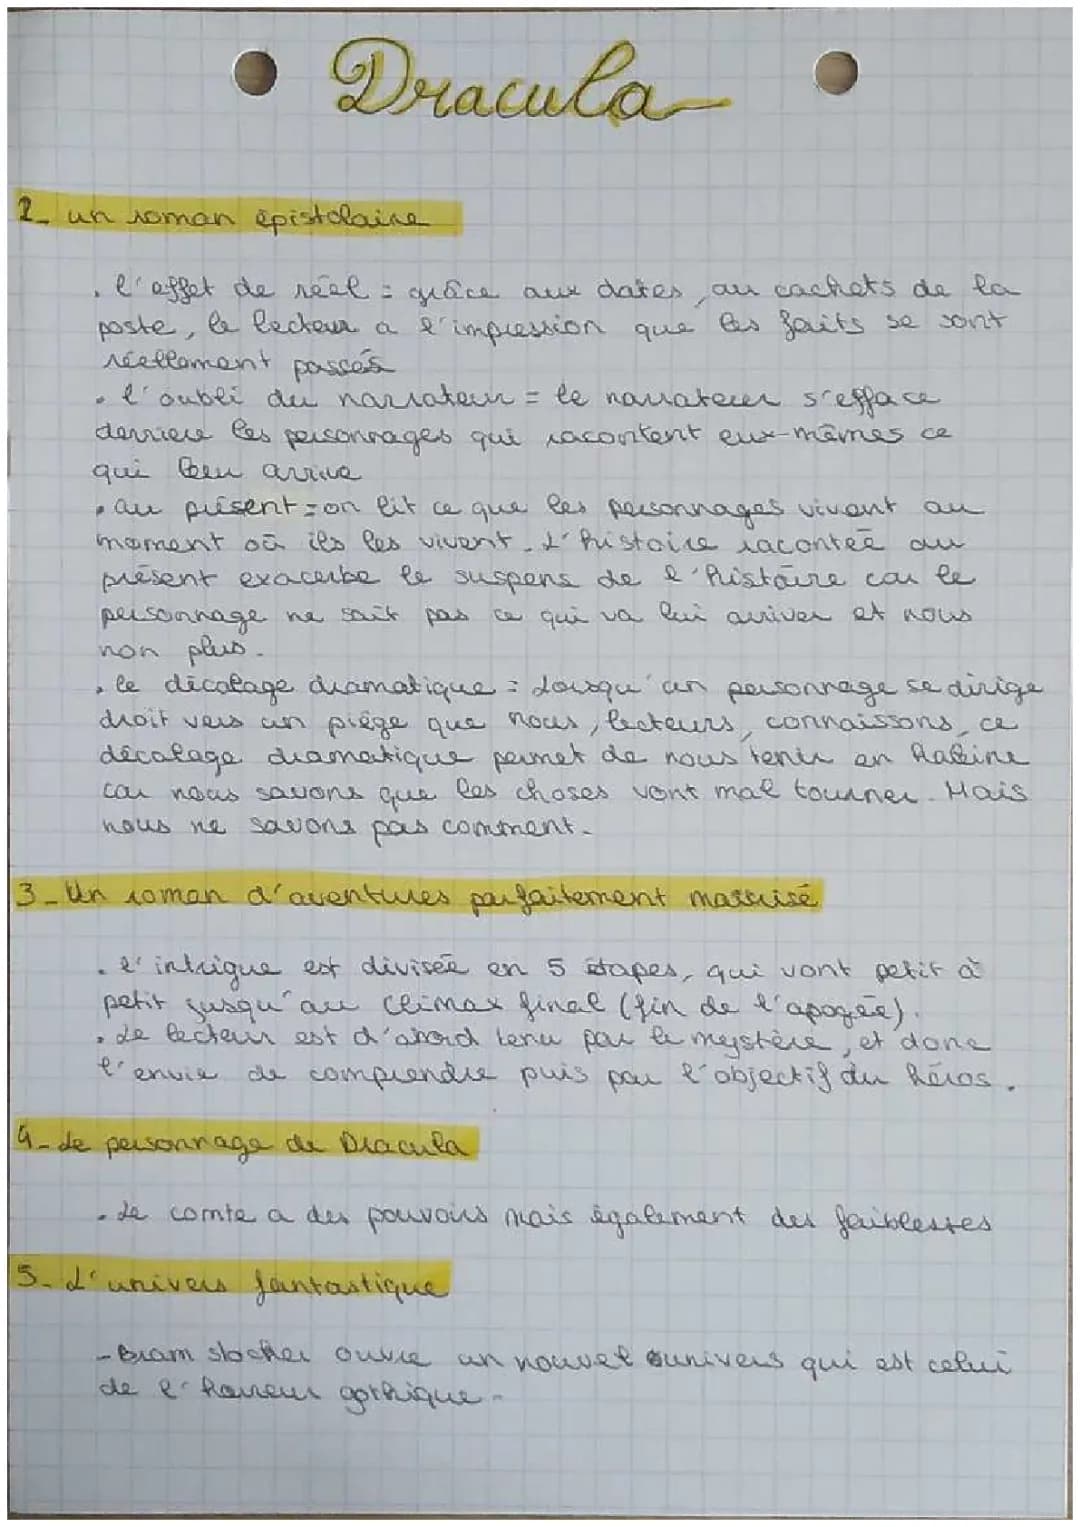 Dracula
2_ un roman épistolaire
. l'effet de réel = grâce aux dates, au cachets de la
poste, le lecteur a l'impression que les faits se sont
réellement passés
. l'oubli du narrateur = le narrateur s'efface
derrière les personnages qui racontent eux-mêmes ce
qui leur arrive
. au présent = on lit ce que les personnages vivent au
moment où ils les vivent. L'histoire racontée au
présent exacerbe le suspens de l'histoire car le
personnage ne sait pas ce qui va lui arriver et nous
non plus.
. le décalage dramatique = Lorsqu'un personnage se dirige
droit vers un piège que nous, lecteurs, connaissons, ce
décalage dramatique permet de nous tenir en haleine
car nous savons que les choses vont mal tourner. Mais
nous ne savons pas comment.
3_ Un roman d'aventures parfaitement maîtrisé
. l'intrigue est divisée en 5 étapes, qui vont petit à
petit jusqu'au climax final (fin de l'apogée).
. Le lecteur est d'abord tenu par le mystère, et donc
l'envie de comprendre puis par l'objectif du héros.
4_ Le personnage de Dracula
. Le comte a des pouvoirs mais également des faiblesses
5_ L'univers fantastique
- Bram stocker ouvre un nouvel univers qui est celui
de l'horreur gothique.